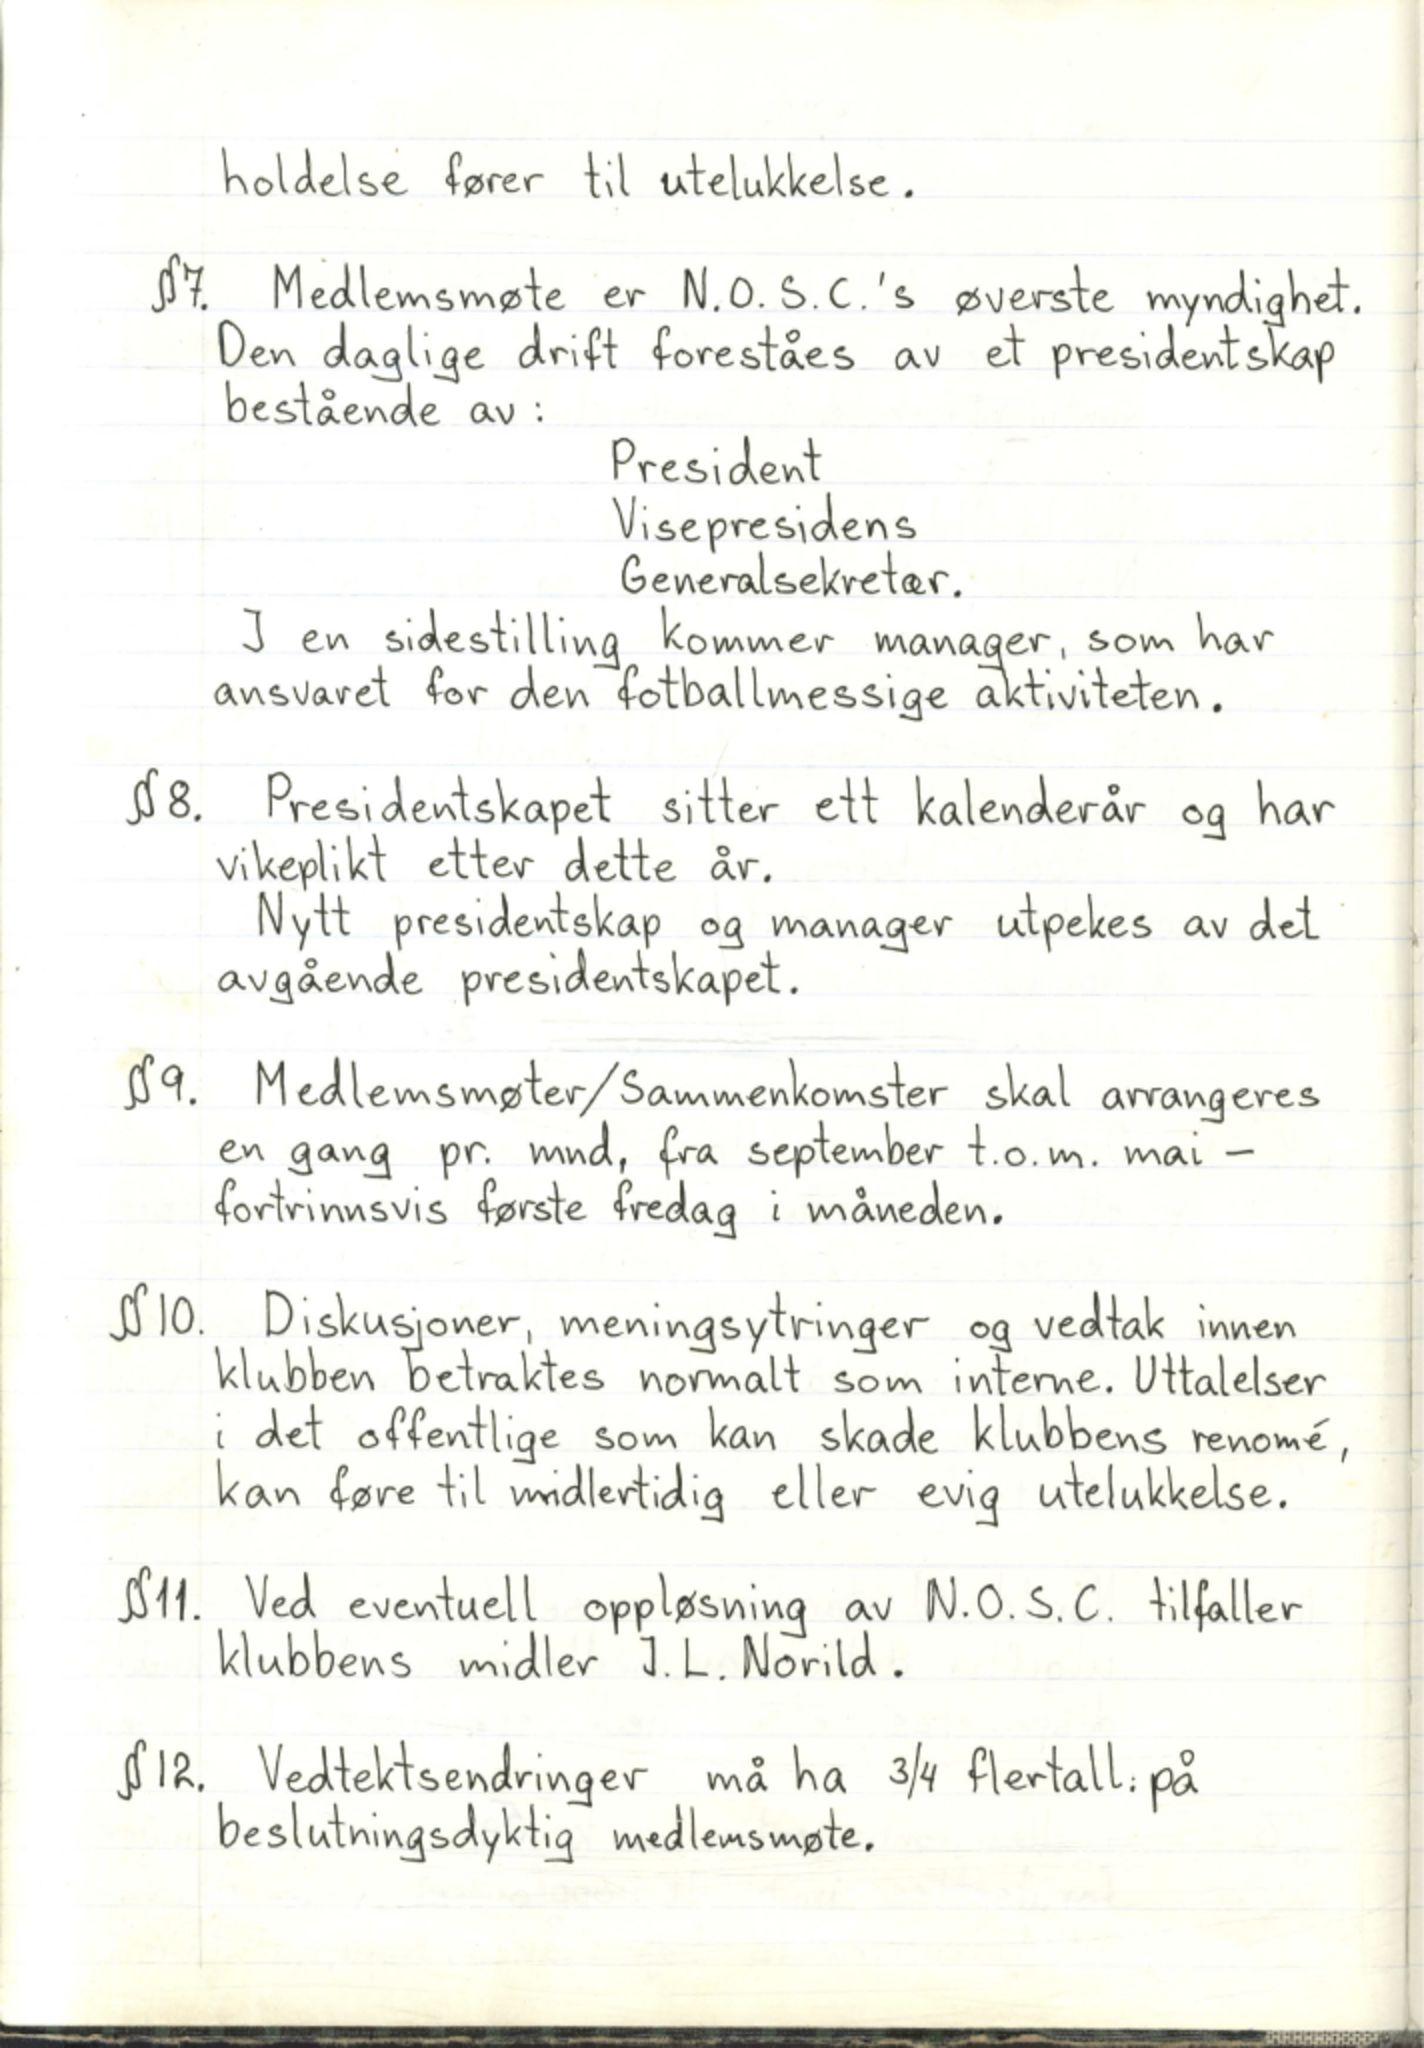 holdelse fører til utelukkelse.
§7. Medlemsmøte er N.O.S.C.'s øverste myndighet.
Den daglige drift foreståes av et presidentskap
bestående av:
President
Visepresidens
Generalsekretær.
I en sidestilling kommer manager, som har
ansvaret for den fotballmessige aktiviteten.
§8. Presidentskapet sitter ett kalenderår og har
vikeplikt etter dette år.
Nytt presidentskap og manager utpekes av det
avgående presidentskapet.
§9. Medlemsmøter/Sammenkomster skal arrangeres
en gang pr. mnd, fra september t.o.m. mai –
fortrinnsvis første fredag i måneden.
§10. Diskusjoner, meningsytringer og vedtak innen
klubben betraktes normalt som interne. Uttalelser
i det offentlige som kan skade klubbens renomé,
kan føre til midlertidig eller evig utelukkelse.
§11. Ved eventuell oppløsning av N.O.S.C. tilfaller
klubbens midler I.L. Norild.
§12. Vedtektsendringer må ha 3/4 flertall på
beslutningsdyktig medlemsmøte.